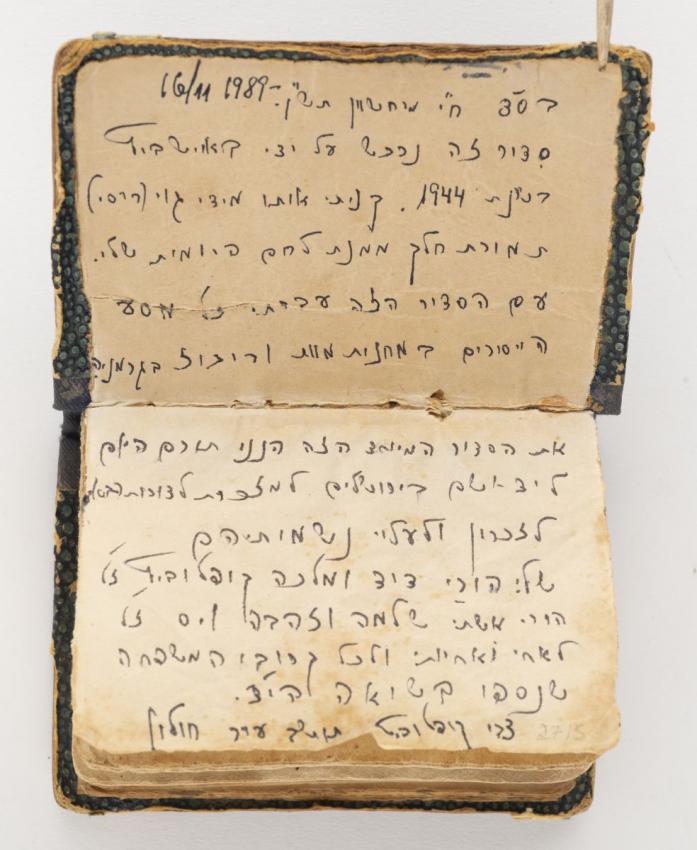 בס"ד ח"י מרחשון תש"ן - 16/11 1989
סדור זה נרכש על ידי באוישביץ
בשנת 1944. קניתי אותו מידי גוי (רוסי)
תמורת חלק ממנת לחם היומית שלי.
עם הסדור הזה עברתי כל מסע
היסורים במחנות מוות וריכוז בגרמניה
את הסדור המיוחד הזה הנני תורם היום
ליד ושם בירושלים למזכרת לדורות הבאים
לזכרון ולעלוי נשמותיהם
של: הורי דוד ומלכה קופלוביץ ז"ל
הורי אשתי שלמה וזהבה וייס ז"ל
לאחי ואחיותי ולכל קרובי המשפחה
שנספו בשואה הי"ד.
צבי קופלוביץ תושב עיר חולון
2715